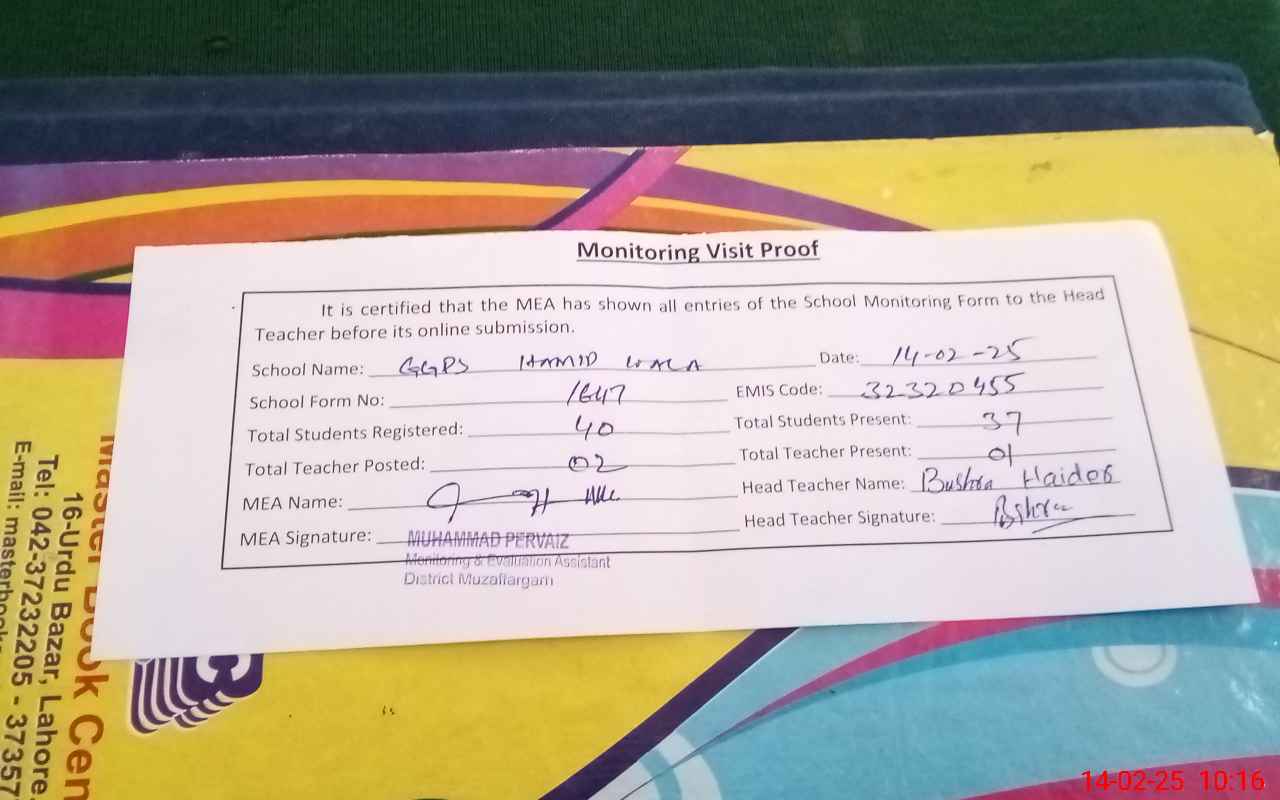 Monitoring Visit Proof
It is certified that the MEA has shown all entries of the School Monitoring Form to the Head
Teacher before its online submission.
School Name: GGPS HAMID WALA Date: 14-02-25
School Form No: 1647 EMIS Code: 32320455
Total Students Registered: 40 Total Students Present: 37
Total Teacher Posted: 02 Total Teacher Present: 01
MEA Name: Head Teacher Name: Bushra Haider
MEA Signature: Head Teacher Signature: Bshra
MUHAMMAD PERVAIZ
Monitoring & Evaluation Assistant
District Muzaffargarh
Master Book Cen
16-Urdu Bazar, Lahore.
Tel: 042-37232205 - 37357
E-mail: masterbook
14-02-25 10:16